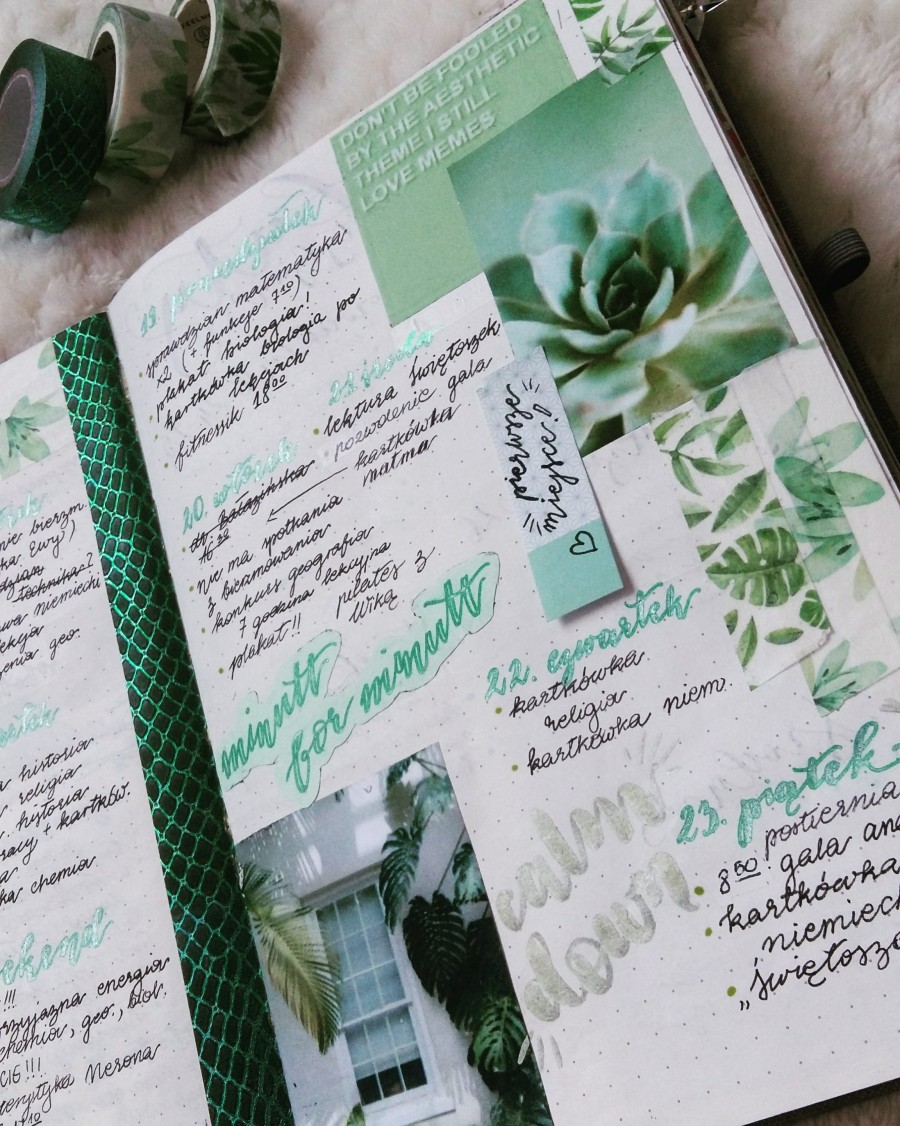 DON'T BE FOOLED
BY THE AESTHETIC
THEME I STILL
LOVE MEMES
19. poniedziałek
sprawdzian matematyka
x2 (+ funkcje 7¹⁰)
plakat biologia!
kartkówka biologia po
lekcjach
fitnessik 18⁰⁰
20. wtorek
nie ma spotkania
z bierzmowania
konkurs geografia
7 godzina lekcyjna
plakat!!
pilates z
Wiką
21. środa
lektura Świętoszek
pozwolenie gala
kartkówka
matma
pierwsze
miejsce!
minutt
for minutt
22. czwartek
kartkówka
religia
kartkówka niem.
calm
down
23. piątek
8⁵⁰
gala
kartkówka
niemiec
"Święto
nie bierzm.
technika?
niemiecki
lekcja
geo.
historia
religia
historia
+ kartków.
chemia
!!!
przyjazna energia
chemia, geo., biol.
Nerona